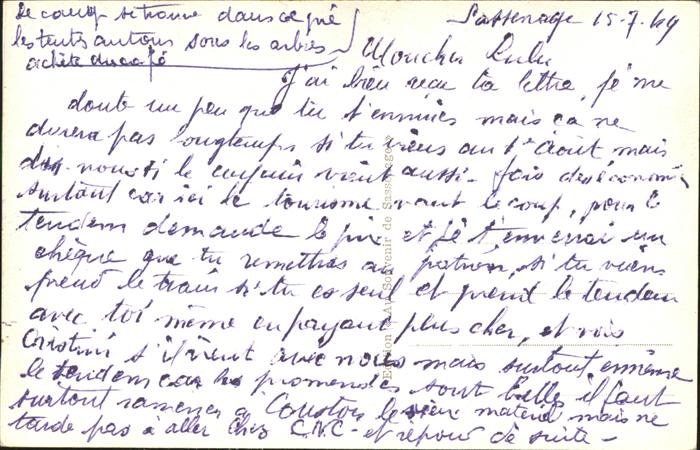 Le camp se trouve dans ce pré
les tentes autour sous les arbres
achète du café
Sassenage 15-7.49
Mon cher Lulu
J'ai bien reçu ta lettre, je me
doute un peu que tu t'ennuies mais ça ne
durera pas longtemps si tu viens au 1er Août mais
dis-nous si le copain vient aussi - fais des économies
surtout car ici le tourisme vaut le coup, pour le
tendem demande le prix et je t'enverrai un
chèque que tu remettras au patron, si tu viens
prend le train si tu es seul et prend le tendem
avec toi même en payant plus cher, et vois
s'il vient avec nous mais surtout emmène
le tendem car les promenades sont belles il faut
surtout ramener à le vieux matériel mais ne
tarde pas à aller chez C.N.C - et répond de suite -
Edition d'Art Souvenir de Sassenage